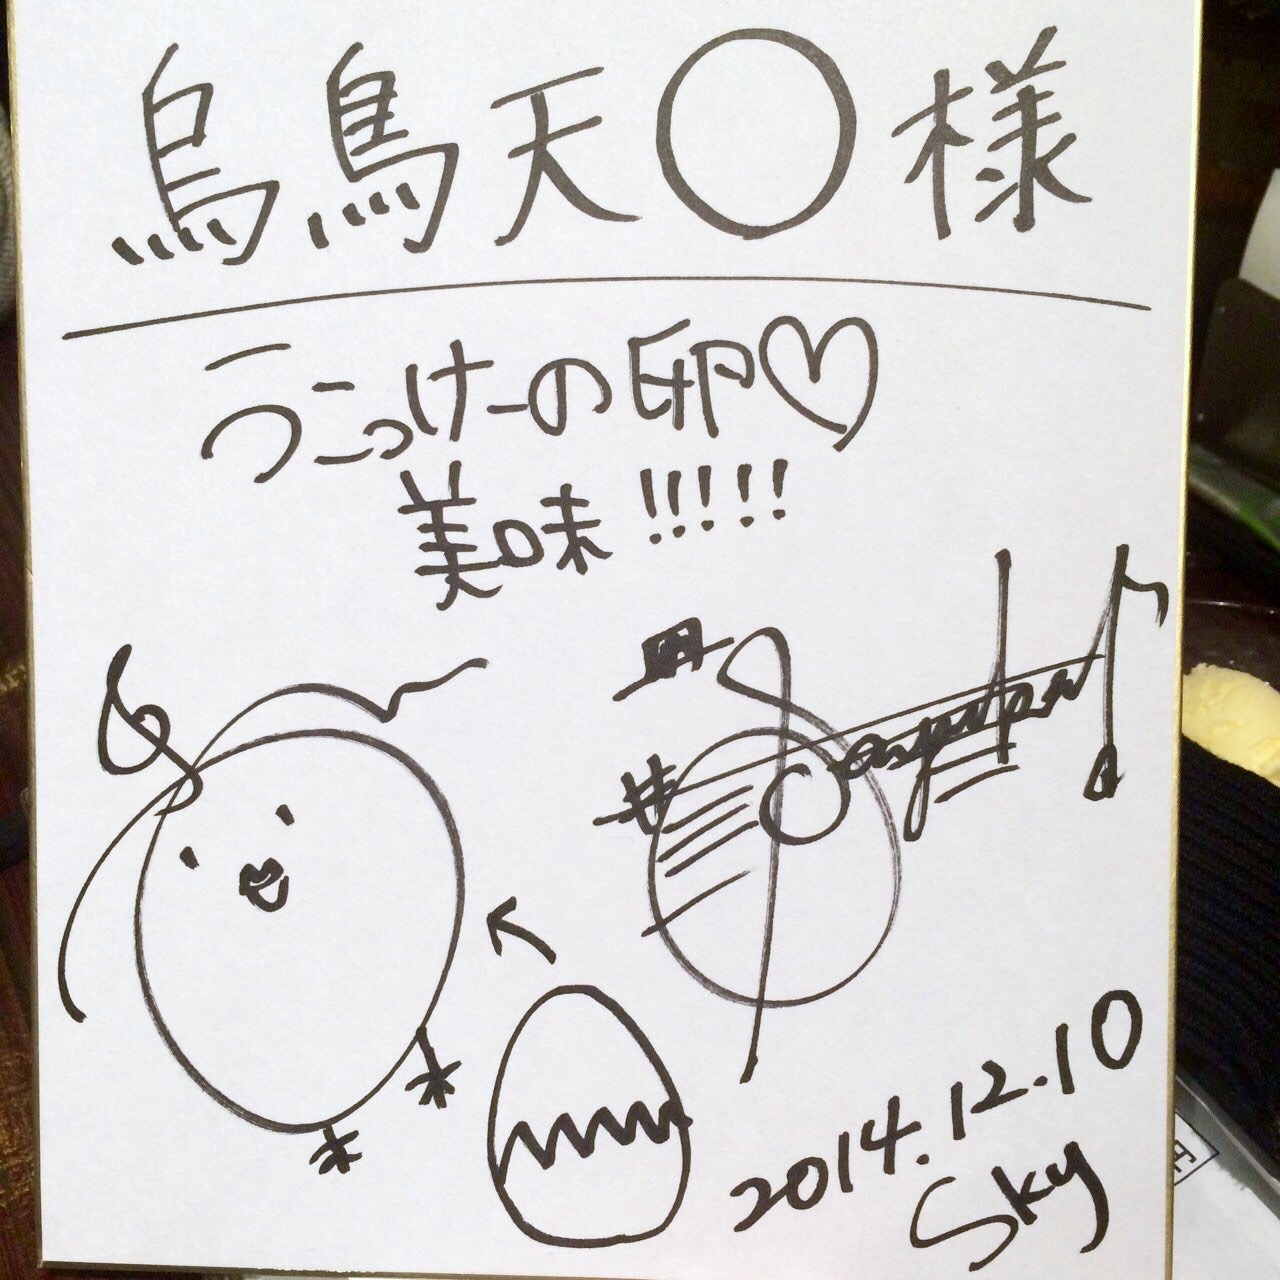 烏鳥天〇様
うこっけーの卵♡
美味!!!!!
2014.12.10
Sky